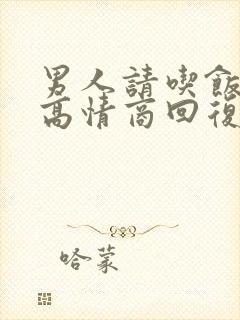 男人請喫飯
高情商回復
哈蒙